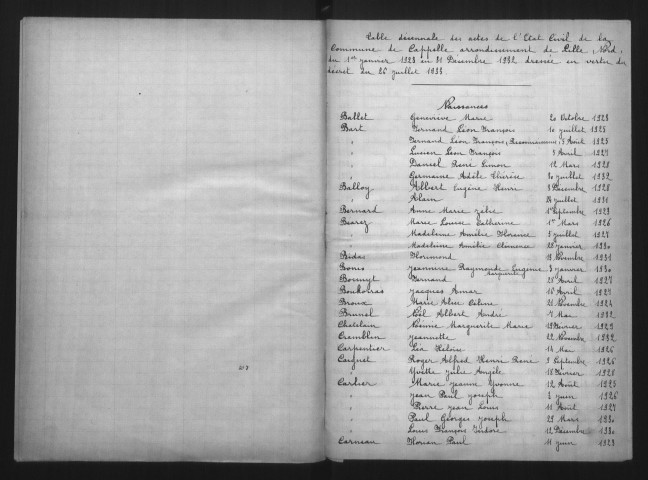 Table décennale des actes de l'Etat Civil de la
Commune de Cappelle arrondissement de Lille, Nord,
du 1er janvier 1923 au 31 Décembre 1932 dressée en vertu du
décret du 26 juillet 1933
Naissances
Ballet Geneviève Marie 20 Octobre 1923
Bart Fernand Léon François 10 juillet 1925
" Fernand Léon François, Reconnaissance 15 Août 1925
" Lucien Léon François 5 Avril 1927
" Daniel René Simon 12 Mars 1928
" Germaine Adèle Thérèse 30 juillet 1932
Balloy Albert Eugène Henri 8 Décembre 1928
" Alain 24 juillet 1931
Bernard Anne Marie Septembre 1923
Béarez Marie Louise Catherine 1er Mars 1926
" Madeleine Amélie Floraine 5 juillet 1927
" Madeleine Amélie Clémence 22 janvier 1930
Bidas Florimond 18 Novembre 1931
Bonis Jeannine Raymonde Eugénie 3 janvier 1930
Fernand 25 Avril 1927
Jacques Amar 16 Avril 1927
Broux Marie Aline Céline 21 Novembre 1924
Brunel Albert André 7 Mai 1932
Chatelain Marguerite Marie Février 1929
Cremblin Jeannette 22 Novembre 1932
Carpentier Léa Héloïse 14 Mai 1926
Roger Alfred Henri René 3 Septembre 1926
" Yvette Julie Angèle 18 Février 1928
Carlier Marie Jeanne Yvonne 12 Août 1923
" Jean Paul Joseph 2 juin 1926
" Pierre Jean Louis 11 Août 1927
" Paul Georges Joseph 29 Mars 1930
" Louis François Isidore 12 Décembre 1930
Carneau Florian Paul 11 juin 1923